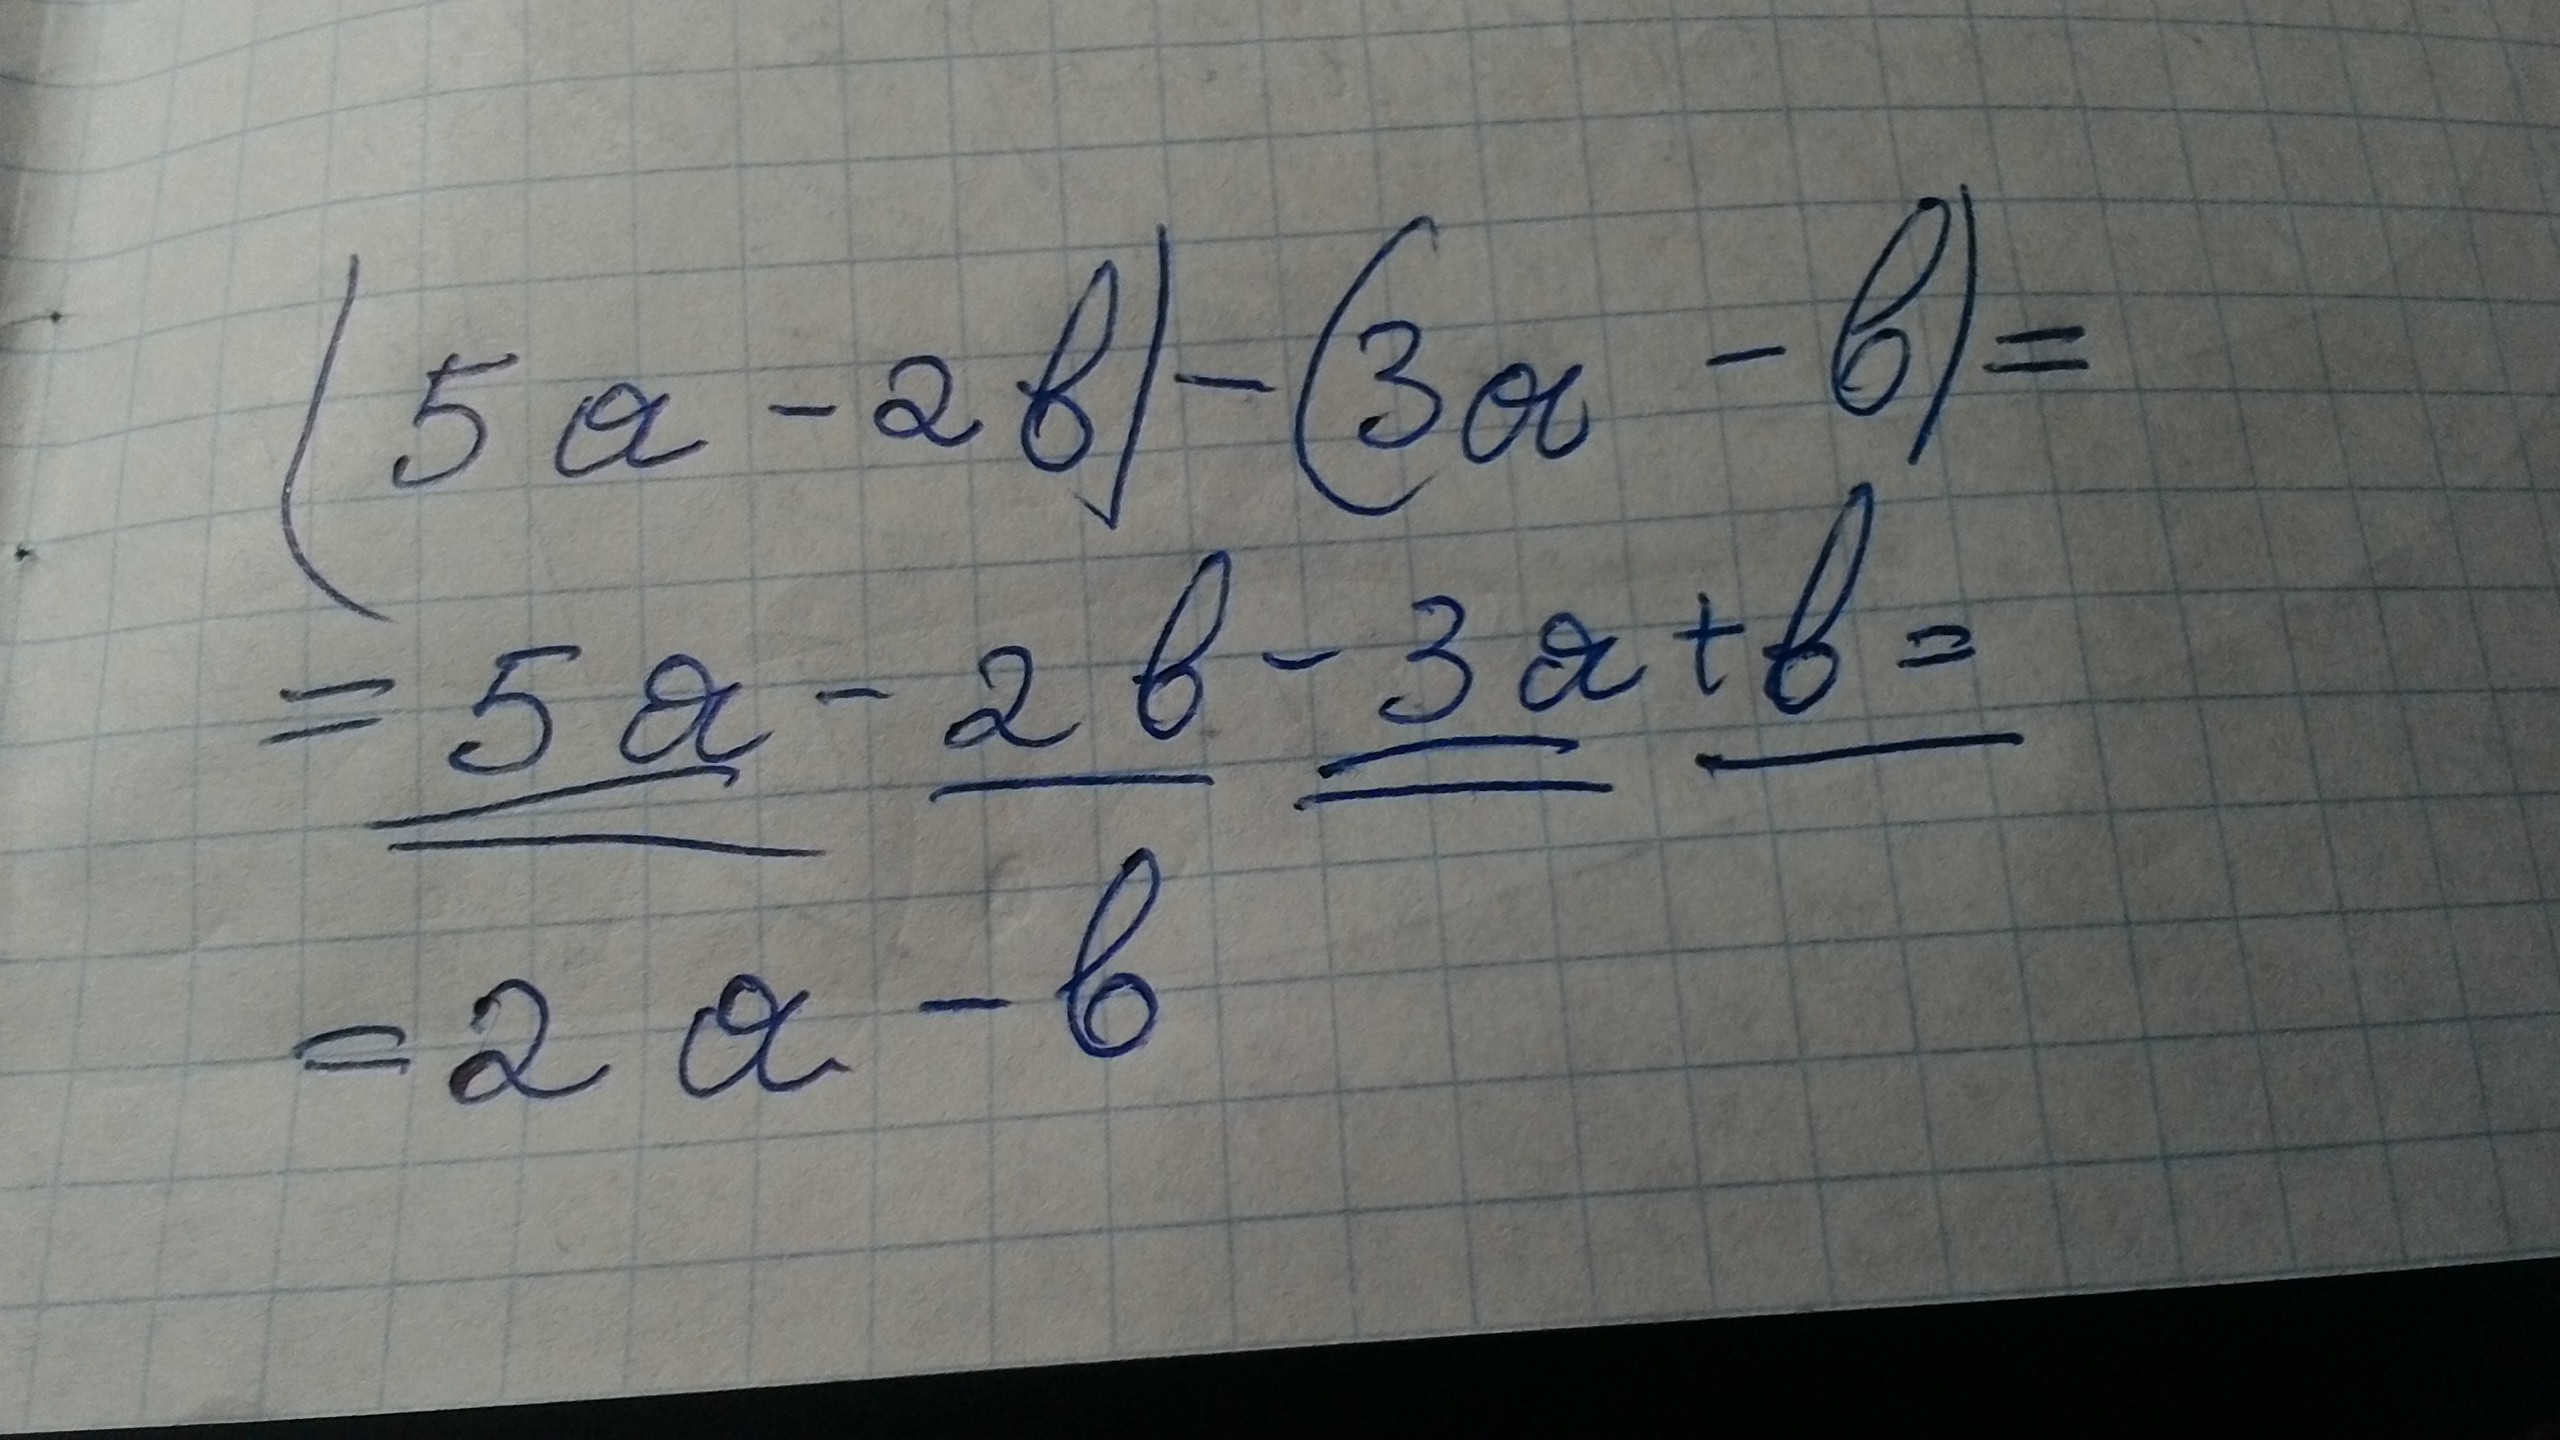 (5a - 2b) - (3a - b) =
= 5a - 2b - 3a + b =
= 2a - b